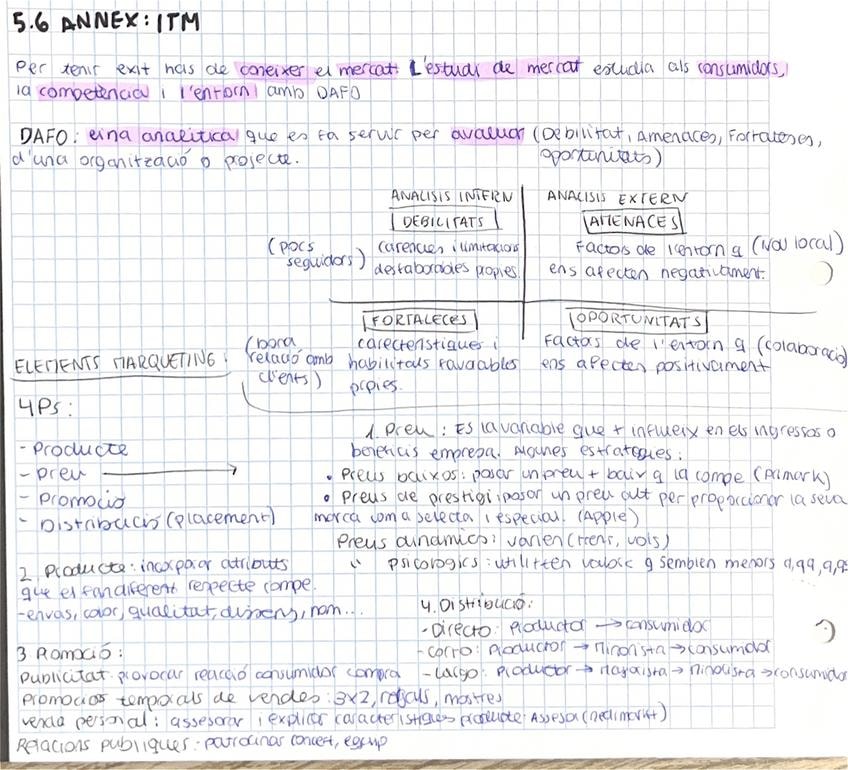 5.6 ANNEX: ITM
Per tenir exit has de coneixer el mercat. L'estudi de mercat estudia als consumidors,
la competencia i l'entorn amb DAFO
DAFO: eina analitica que es fa servir per avaluar (Debilitat, Amenaces, Fortaleses,
oportunitats)
d'una organització o projecte.
ANALISIS INTERN
DEBILITATS
(pocs seguidors)
carencies i limitacions
desfaborables propies
ANALISIS EXTERN
AMENACES
Factors de l'entorn q (Nou local)
ens afecten negativament.
FORTALECES
(bona relació amb clients)
carecteristiques i
habilitats favorables
propies.
OPORTUNITATS
Factors de l'entorn q (colaboració)
ens afecten positivament
ELEMENTS MARQUETING:
4Ps:
- Producte
- Preu
- Promoció
- Distribució (placement)
1. Preu: Es la variable que + influeix en els ingressos o
beneficis empresa. Algunes estrategies:
• Preus baixos: posar un preu + baix q la compe (Primark)
• Preus de prestigi: posar un preu alt per proporcionar la seva
marca com a selecta i especial. (Apple)
Preus dinamics: varien (trens, vols)
" psicologics: utilitzen valors q semblen menors 9,99
2. Producte: incorporar atributs
que el fan diferent respecte compe.
- envas, color, qualitat, disseny, nom...
3 Promoció:
Publicitat provocar reacció consumidor compra
Promocions temporals de vendes: 3x2, regals, mostres
venda personal: assesorar i explicar caracteristiques producte. Assesor (mediamarkt)
Relacions publiques: patrocinar concert, equip
4. Distribució:
- Directo: Productor → consumidor
- corto: Productor → Minorista → consumidor
- Largo: Productor → Mayorista → Minorista → consumidor